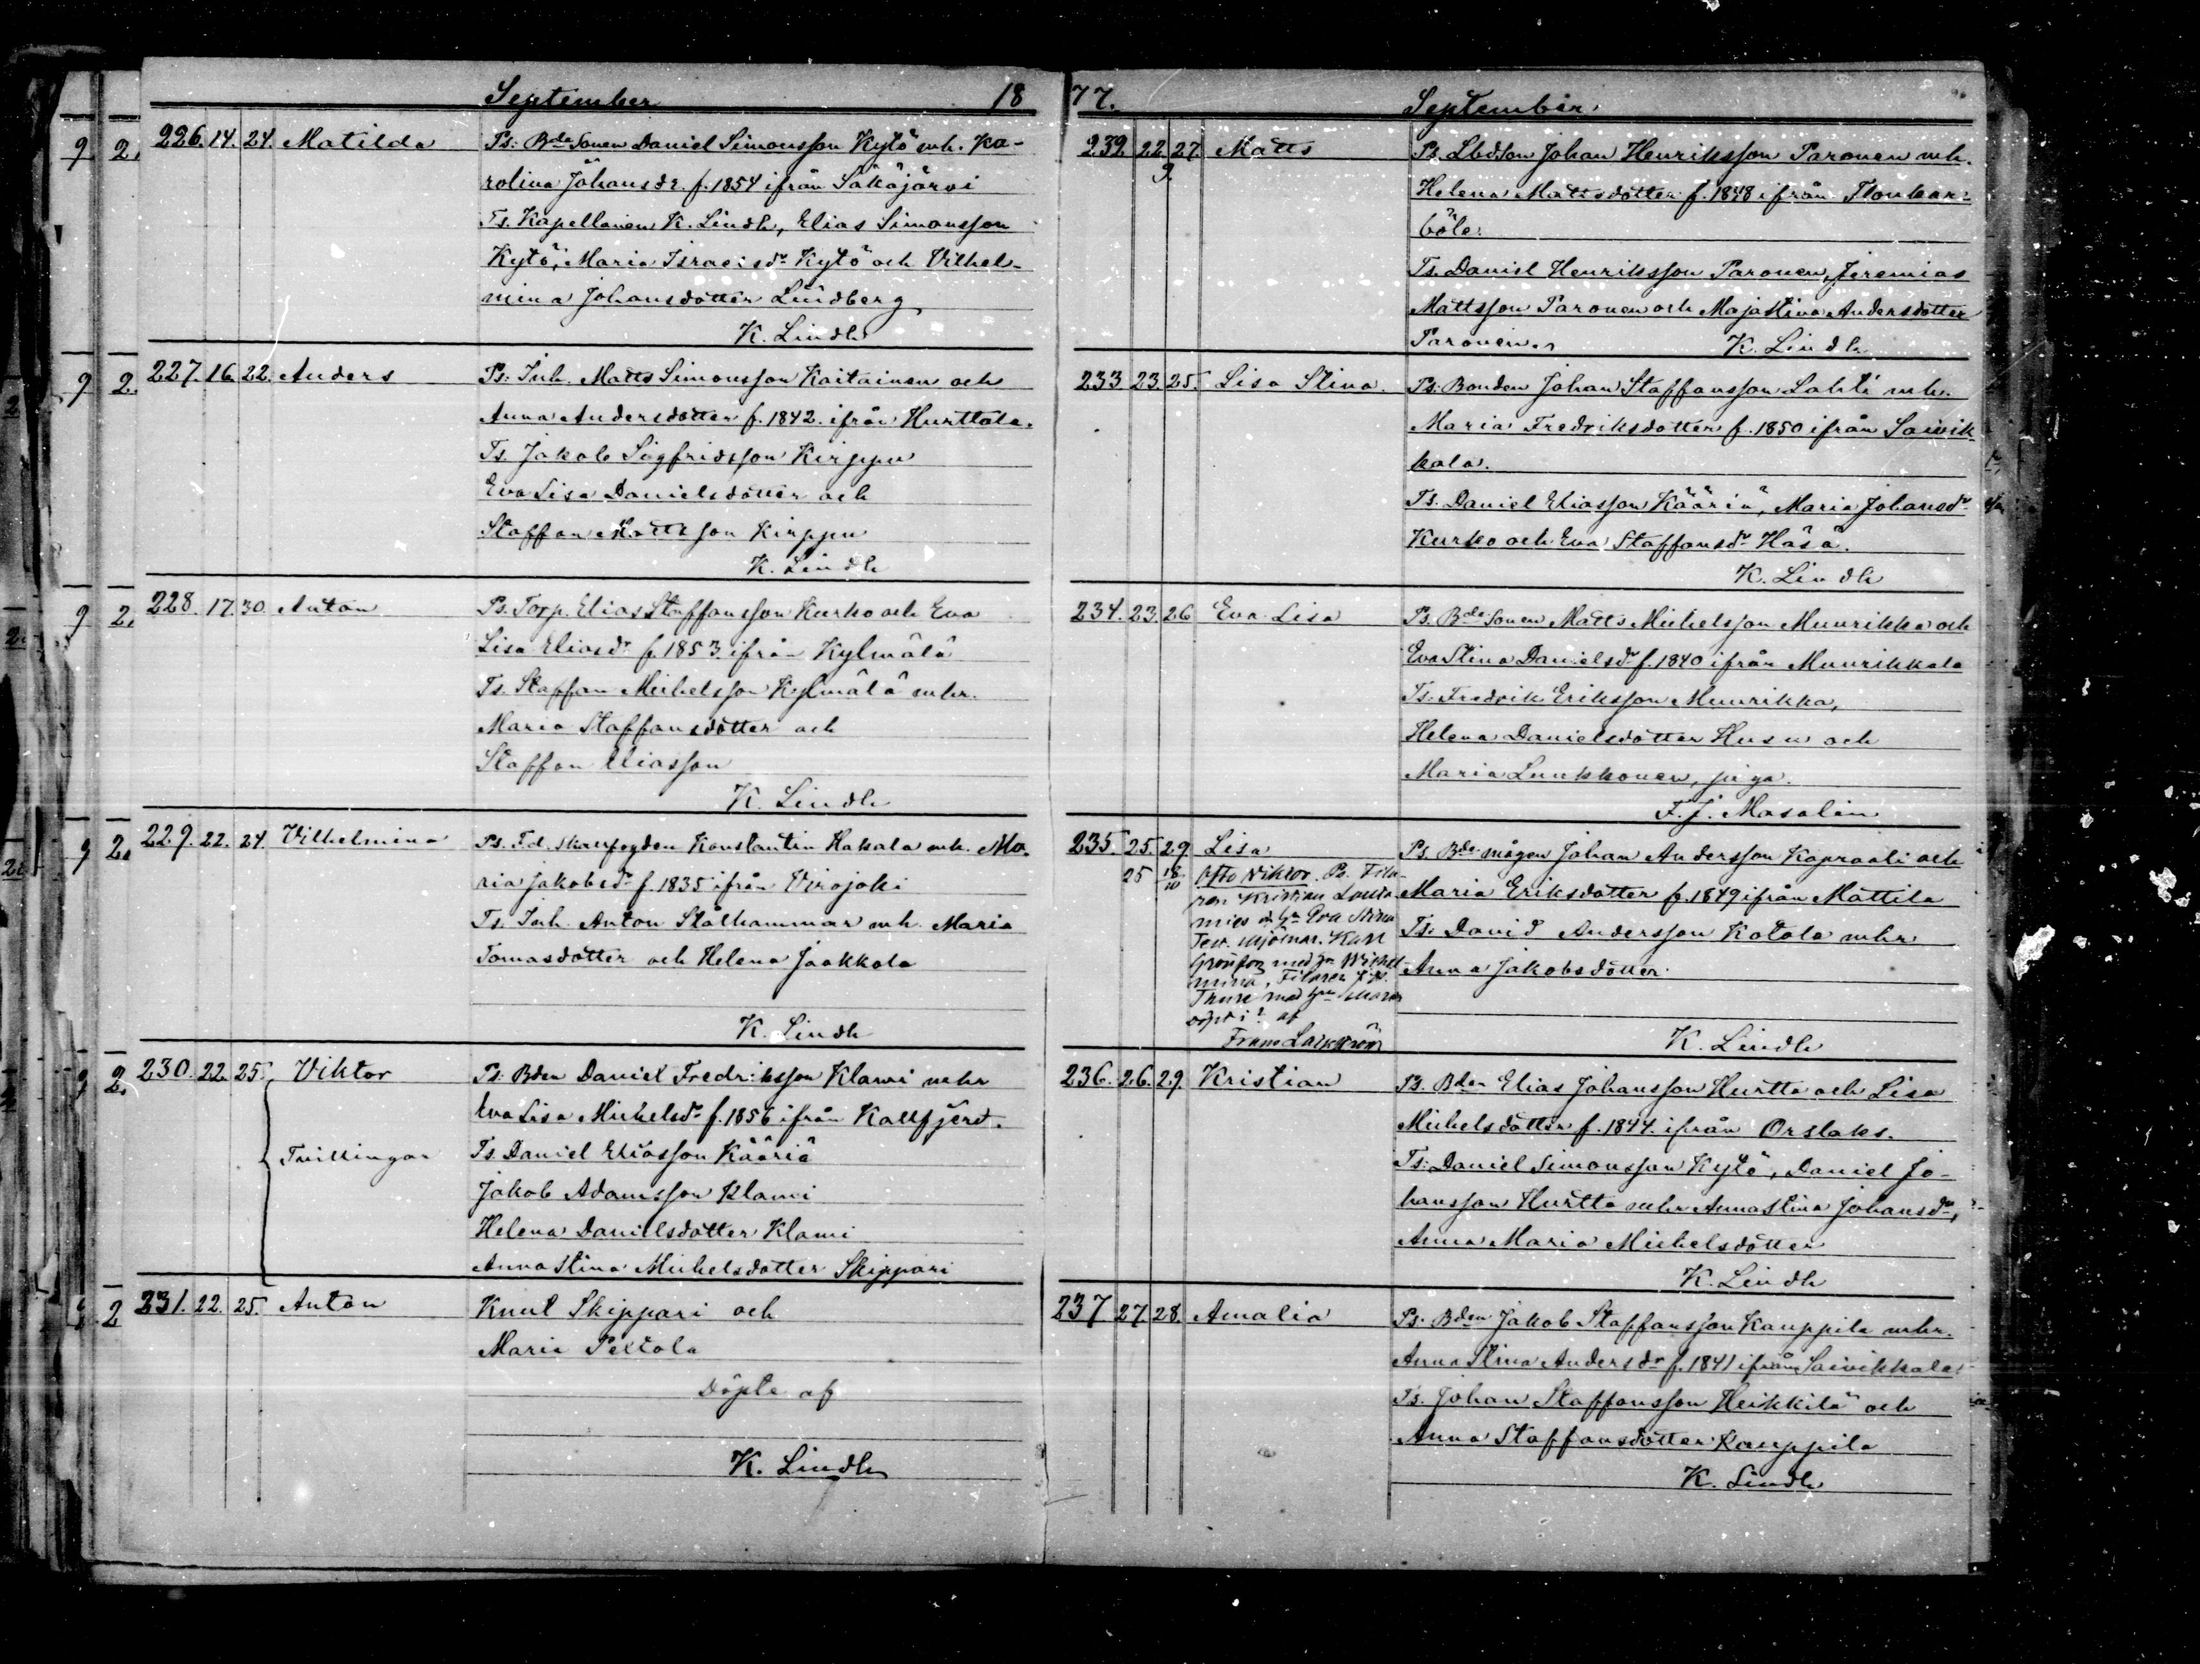 September 18
226. 14. 24. Matilda Ps: Bde Sonen Daniel Simonsson Kytö mh. Ka-
rolina Johansdr. f. 1854 ifrån Säkäjärvi
Ts. Kapellanen K. Lindh, Elias Simonsson
Kytö, Maria Israelsdr Kytö och Vilhel-
mina Johansdotter Lindberg
K. Lindh
227. 16. 22. Anders Ps: Inh. Matts Simonsson Kaitainen och
Anna Andersdotter f. 1842. ifrån Hurttala.
Ts. Jakob Sigfridsson Kirppu
Eva Lisa Danielsdotter och
Staffan Mattsson Kirppu
K. Lindh
228. 17. 30. Anton Ps. Torp. Elias Staffansson Kurko och Eva
Lisa Eliasdr f. 1853. ifrån Kylmälä
Ts. Staffan Michelsson Kylmälä mhr.
Maria Staffansdotter och
Staffan Eliasson
K. Lindh
229. 22. 24. Vilhelmina Ps. F.d. skaufogden Konstantin Hakala mh. Ma-
ria Jakobsdr f. 1835 ifrån Virojoki
Ts. Inh. Anton Stålhammar mh. Maria
Tomasdotter och Helena Jaakkola
K. Lindh
230. 22. 25. Viktor Ps: Bden Daniel Fredriksson Klami mhr
Eva Lisa Michelsdr f. 1856 ifrån Kallfjerd.
Tvillingar Ts. Daniel Eliasson Kääriä
Jakob Adamsson Klami
Helena Danielsdotter Klami
Anna Stina Michelsdotter Skippari
231. 22. 25. Anton Knut Skippari och
Maria Peltola
Döpte af
K. Lindh
77. September
232. 22. 27. Matts Ps. Lbdson Johan Henriksson Paronen mh.
9. Helena Mattsdotter f. 1848 ifrån
böle.
Ts. Daniel Henriksson Paronen, Jeremias
Mattsson Paronen och Maja Stina Andersdotter
Paronen. K. Lindh
233 23. 25. Lisa Stina. Ps: Bonden Johan Staffansson Lahti mh.
Maria Fredriksdotter f. 1850 ifrån Saivik-
kala.
Ts. Daniel Eliasson Kääriä, Maria Johansdr
Kurko och Eva Staffansdr Häsä.
K. Lindh
234. 23. 26 Eva Lisa Ps. Bde Sonen Matts Michelsson Muurikka och
Eva Stina Danielsdr f. 1840 ifrån Muurikkala
Ts. Fredrik Eriksson Muurikka,
Helena Danielsdotter Husu och
Maria Luukkonen, piga.
F. J. Masalin
235. 25. 29 Lisa Ps. Bde mågen Johan Andersson Kapraali och
Maria Eriksdotter f. 1849 ifrån Mattila
Ts: David Andersson Kotola mhr
Anna Jakobsdotter.
K. Lindh
25 18/10 Otto Viktor. Ps.
Kristian
Eva Stina
Karl
med
mina,
Thure med
af
Frans
236. 26. 29. Kristian Ps. Bden Elias Johansson Hurtta och Lisa
Michelsdotter f. 1844. ifrån Orslaks.
Ts: Daniel Simonsson Kytö, Daniel Jo-
hansson Hurtta mhr Anna Stina Johansdr,
Anna Maria Michelsdotter
K. Lindh
237 27. 28. Amalia Ps. Bden Jakob Staffansson Kauppila mhr.
Anna Stina Andersdr f. 1841 ifrån Saivikkala
Ts. Johan Staffansson Heikkilä och
Anna Staffansdotter Kauppila
K. Lindh